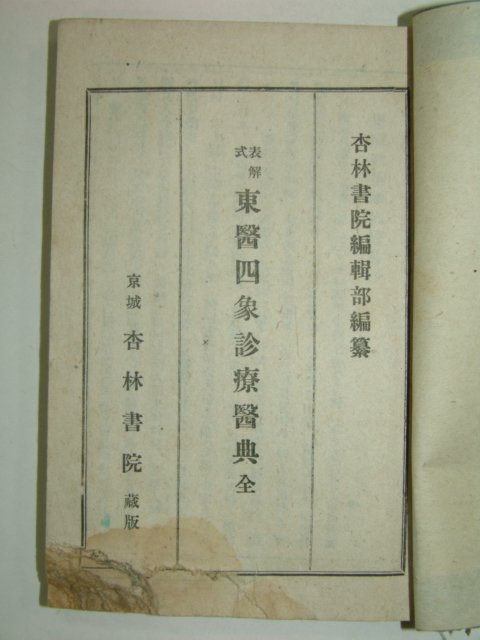 杏林書院編輯部編纂
表解式 東醫四象診療醫典 全
京城 杏林書院 藏版